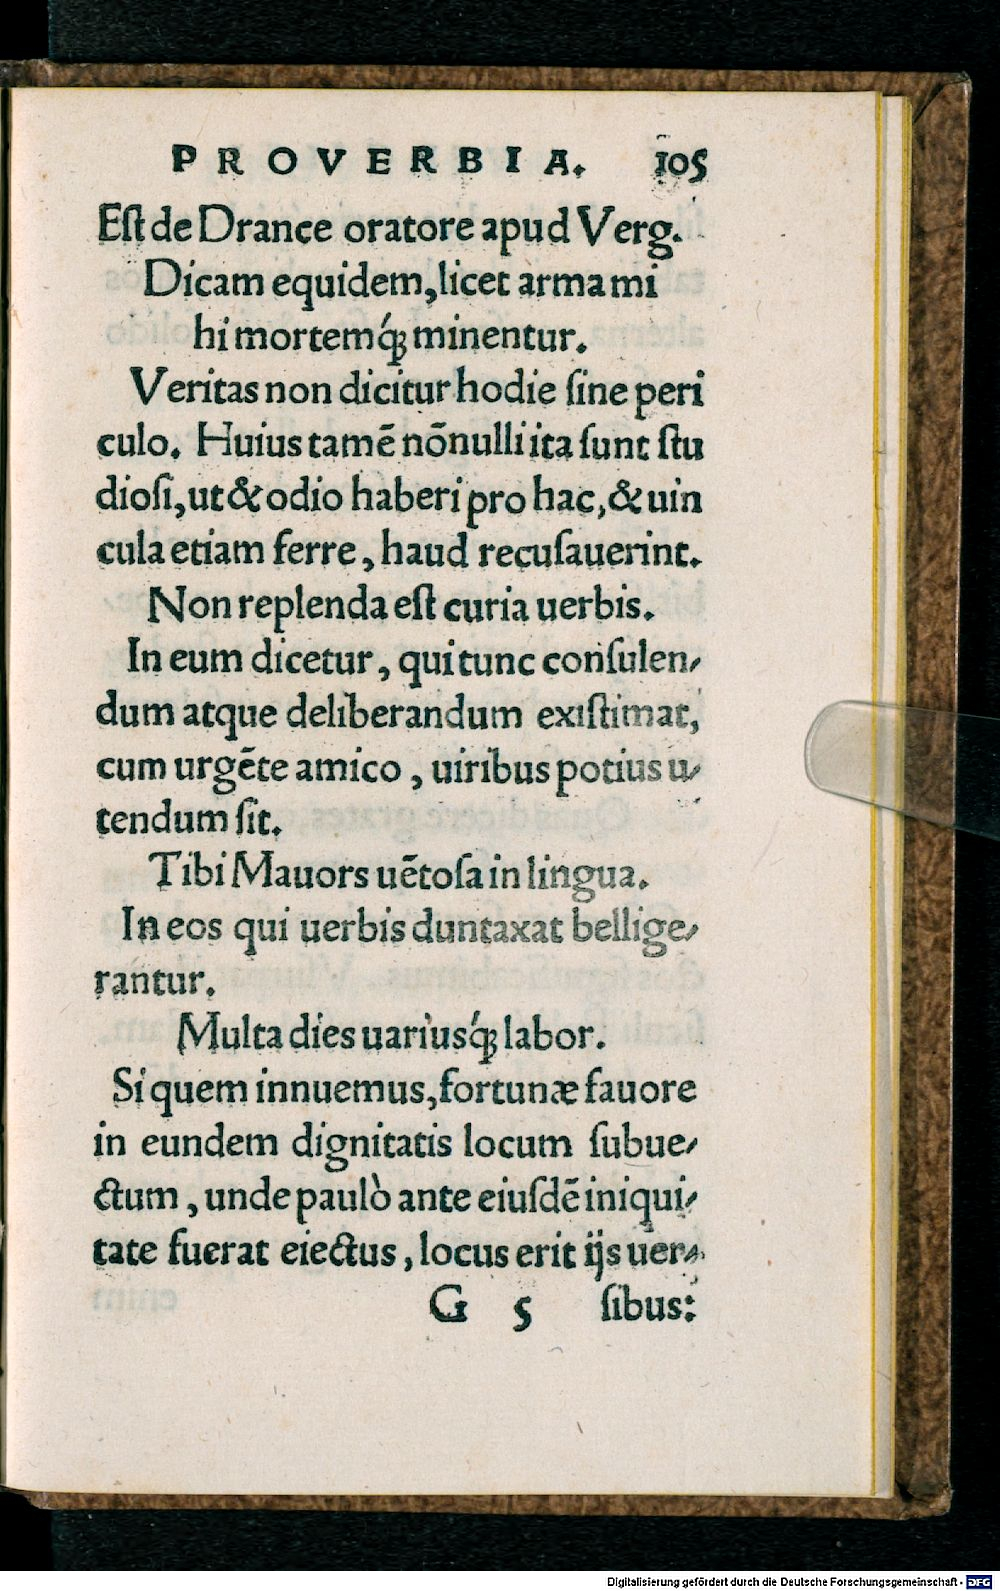 PROVERBIA. 105
Eſt de Drance oratore apud Verg.
Dicam equidem, licet arma mi
hi mortemq́; minentur.
Veritas non dicitur hodie ſine peri
culo. Huius tamē nōnulli ita ſunt ſtu
dioſi, ut & odio haberi pro hac, & uin
cula etiam ferre, haud recuſauerint.
Non replenda eſt curia uerbis.
In eum dicetur, qui tunc conſulen⸗
dum atque deliberandum exiſtimat,
cum urgēte amico, uiribus potius u⸗
tendum ſit.
Tibi Mauors uētoſa in lingua.
In eos qui uerbis duntaxat bellige⸗
rantur.
Multa dies uariusq́; labor.
Si quem innuemus, fortunæ fauore
in eundem dignitatis locum ſubue⸗
ctum, unde paulò ante eiuſdē iniqui⸗
tate fuerat eiectus, locus erit ijs uer⸗
G 5 ſibus:
Digitalisierung gefördert durch die Deutsche Forschungsgemeinschaft - DFG